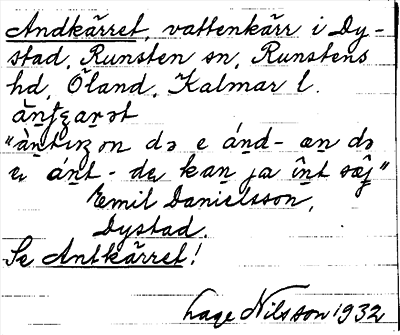 Andkärret, vattenkärr i Dy-
stad, Runsten sn, Runstens
hd, Öland, Kalmar l.
"àntıŋon də e ánd- æn də
u ánt - de kan ja înt sæj"
Emil Danielsson,
Dystad.
Se Antkärret!
Lage Nilsson 1932